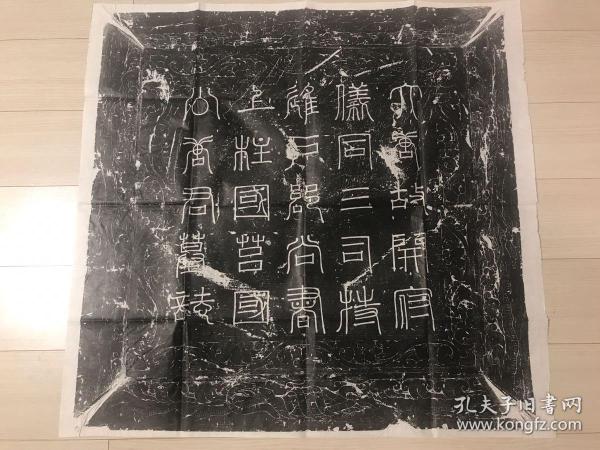 大唐故開府
儀同三司特
進戶部尚書
上柱國莒國
公唐君墓誌
孔夫子旧書网
www.kongfz.com